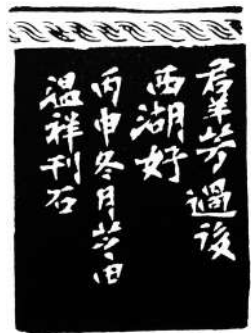 羣芳過後
西湖好
丙申冬月芝田
温祥刊石